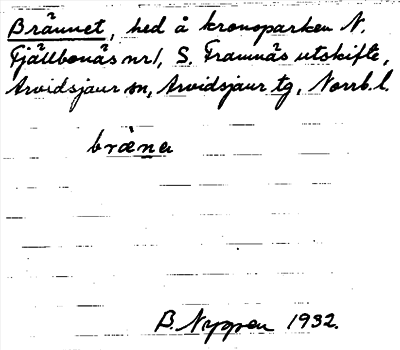 Brännet, hed å kronoparken N.
Fjällbonäs nr 1, S. Framnäs utskifte,
Arvidsjaur sn, Arvidsjaur tg, Norrb. l.
bräna
B. Nygren 1932.